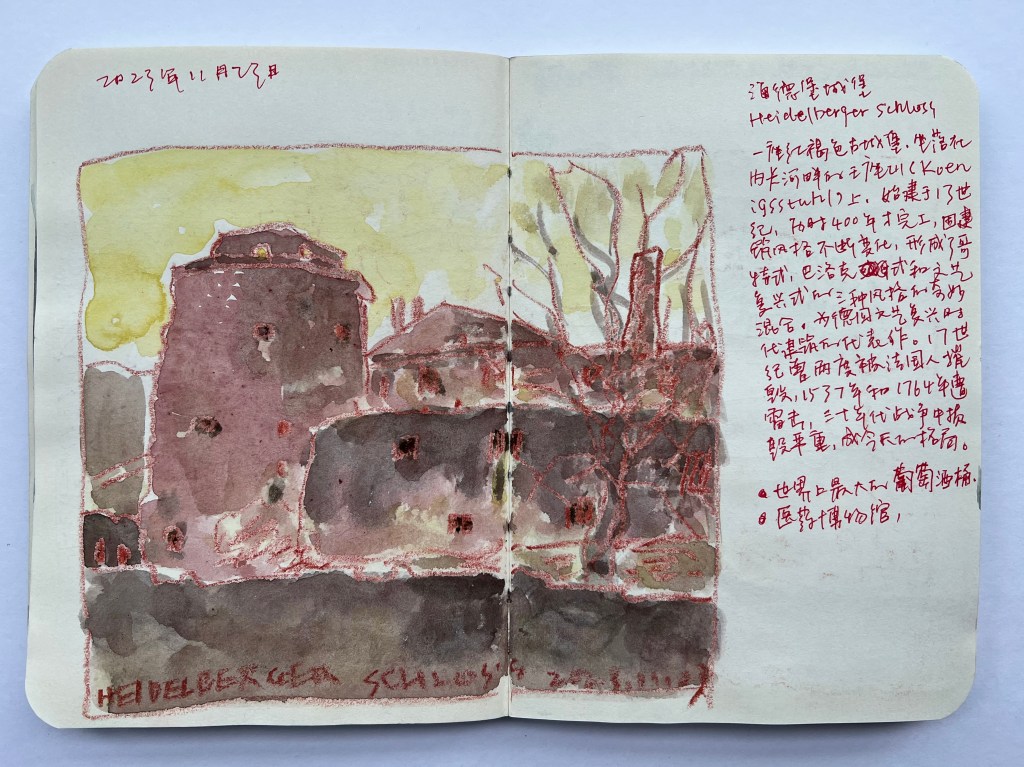 2023年11月23日
海德堡城堡
Heidelberger Schloss
一座红褐色古城堡，坐落在
内卡河畔的王座山(Koen
igsstuhl)上，始建于13世
纪，历时400年才完工，因建
筑风格不断变化，形成了哥
特式，巴洛克式和文艺
复兴式的三种风格的奇妙
混合，为德国文艺复兴时
代建筑的代表作。17世
纪曾两度被法国人摧
毁，1537年和1764年遭
雷击，三十年代战争中损
毁严重，成今天的格局。
世界上最大的葡萄酒桶.
医药博物馆，
HEIDELBERGER SCHLOSS